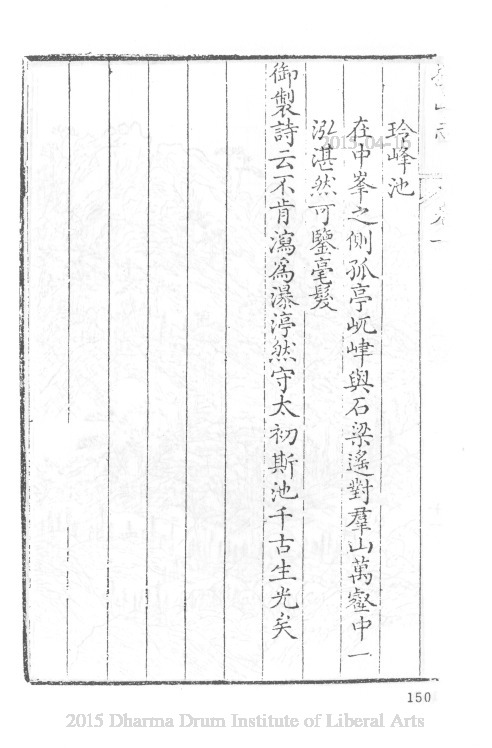 玲峰池
在中峯之側孤亭屼嵂與石梁遙對羣山萬壑中一
泓湛然可鑒毫髮
御製詩云不肯瀉為瀑渟然守太初斯池千古生光矣
2015-04-16
150
2015 Dharma Drum Institute of Liberal Arts